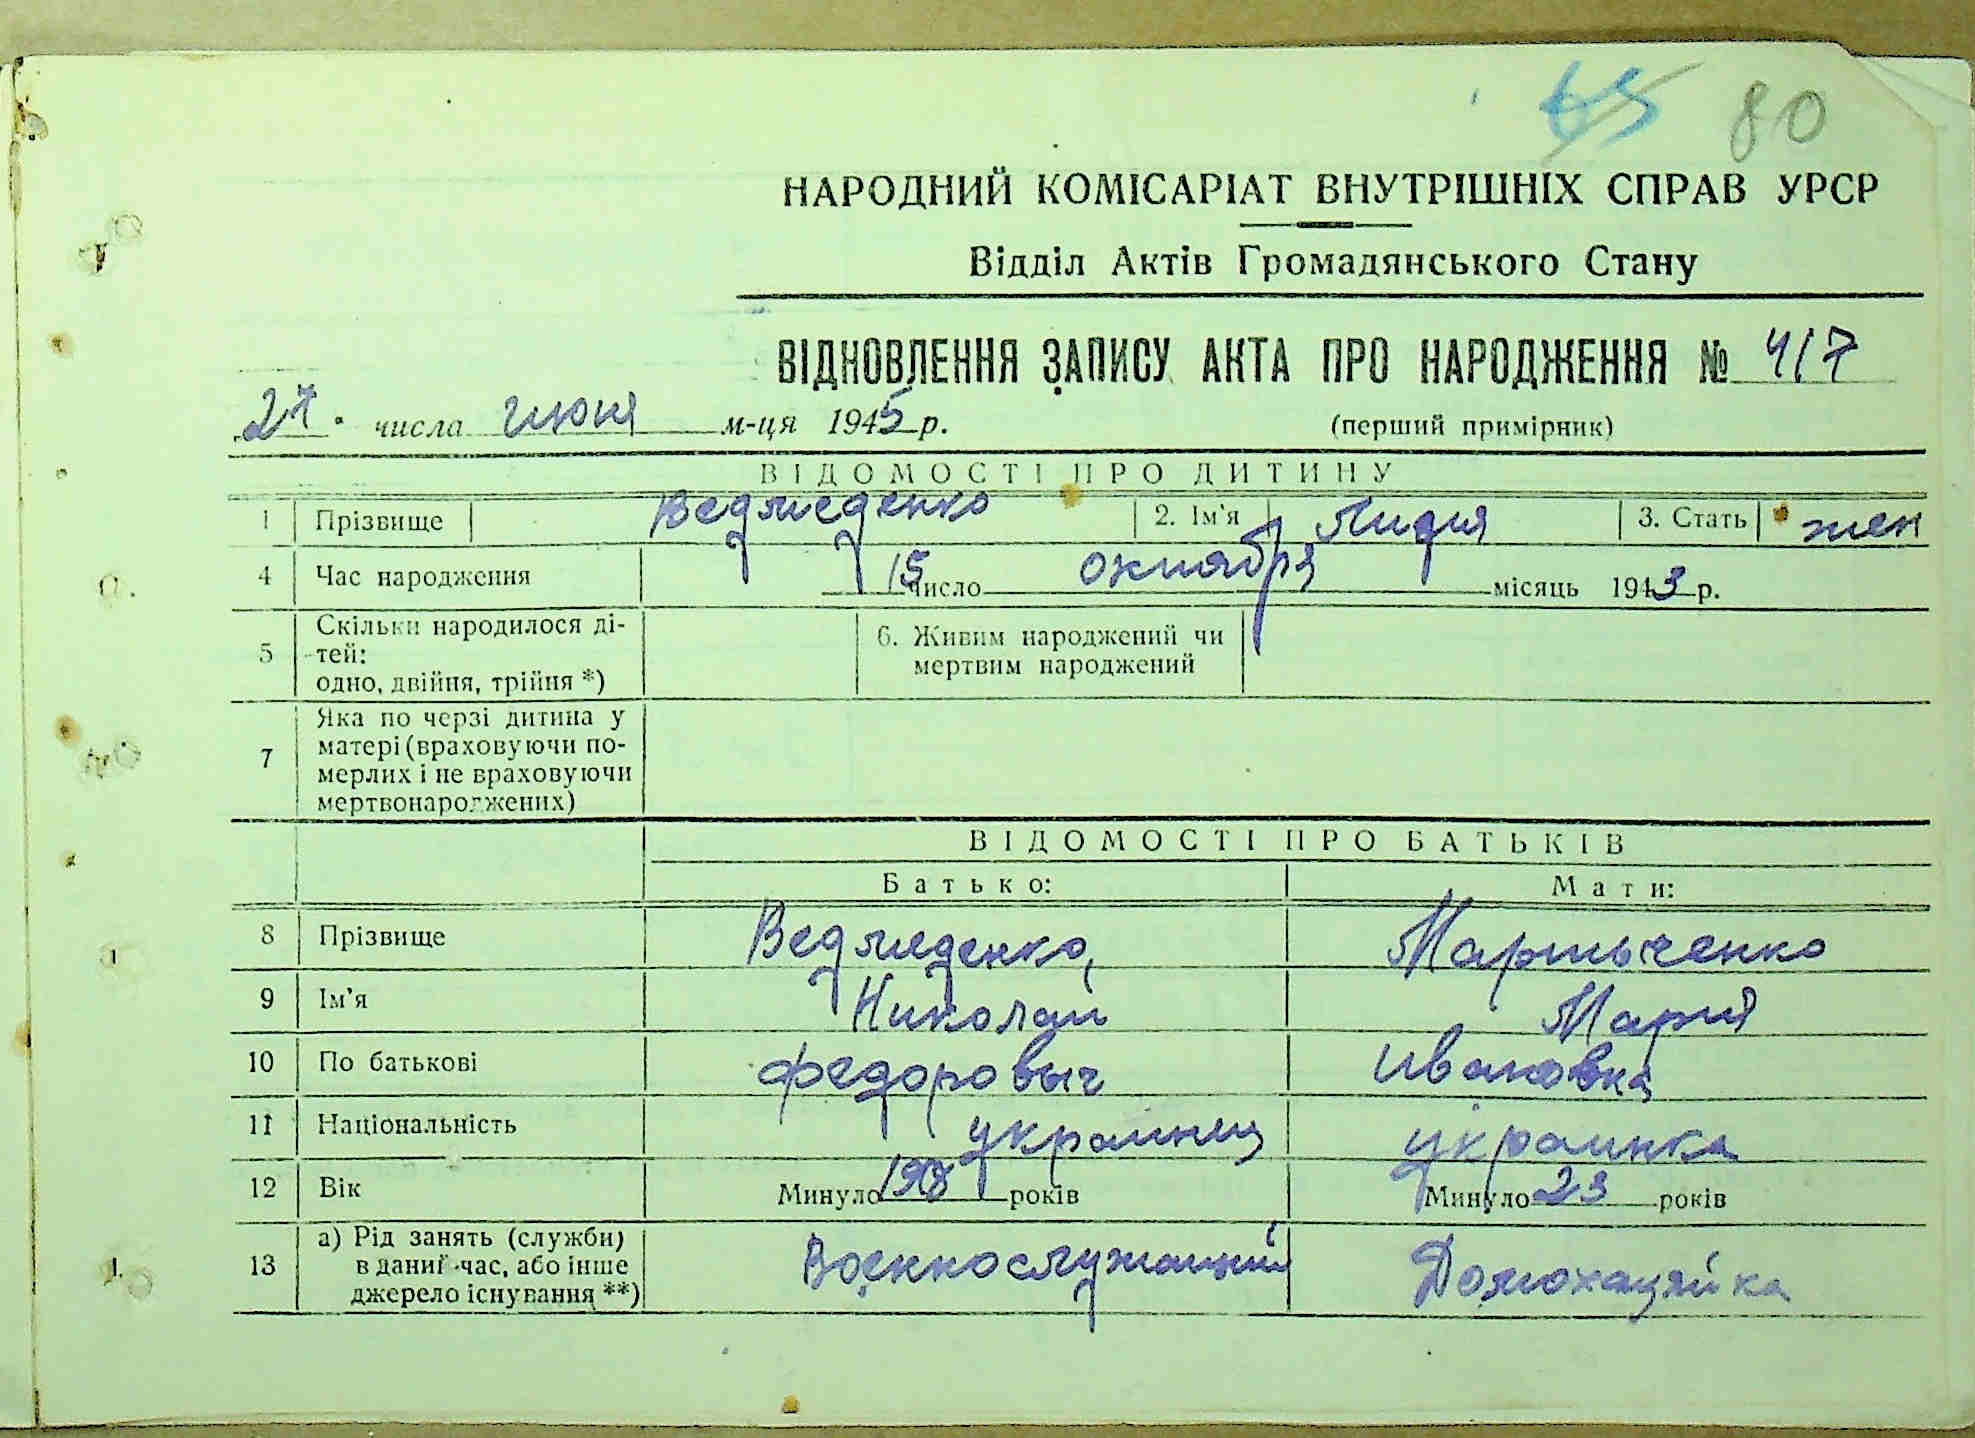 65 80
НАРОДНИЙ КОМІСАРІАТ ВНУТРІШНІХ СПРАВ УРСР
Відділ Актів Громадянського Стану
ВІДНОВЛЕННЯ ЗАПИСУ АКТА ПРО НАРОДЖЕННЯ № 417
27 числа июня м-ця 1945 р. (перший примірник)
ВІДОМОСТІ ПРО ДИТИНУ
1 Прізвище Ведмеденко 2. Ім'я Лидия 3. Стать жен
4 Час народження 15 число октября місяць 1943 р.
5 Скільки народилося ді-
тей:
одно, двійня, трійня *)
6. Живим народжений чи
мертвим народжений
7 Яка по черзі дитина у
матері (враховуючи по-
мерлих і не враховуючи
мертвонароджених)
ВІДОМОСТІ ПРО БАТЬКІВ
Батько: Мати:
8 Прізвище Ведмеденко, Мартыченко
9 Ім'я Николай Мария
10 По батькові Федоровыч Ивановка
11 Національність украинец украинка
12 Вік Минуло років Минуло 23 років
13 а) Рід занять (служби)
в даний час, або інше
джерело існування **)
Военнослужащий Домохазяйка